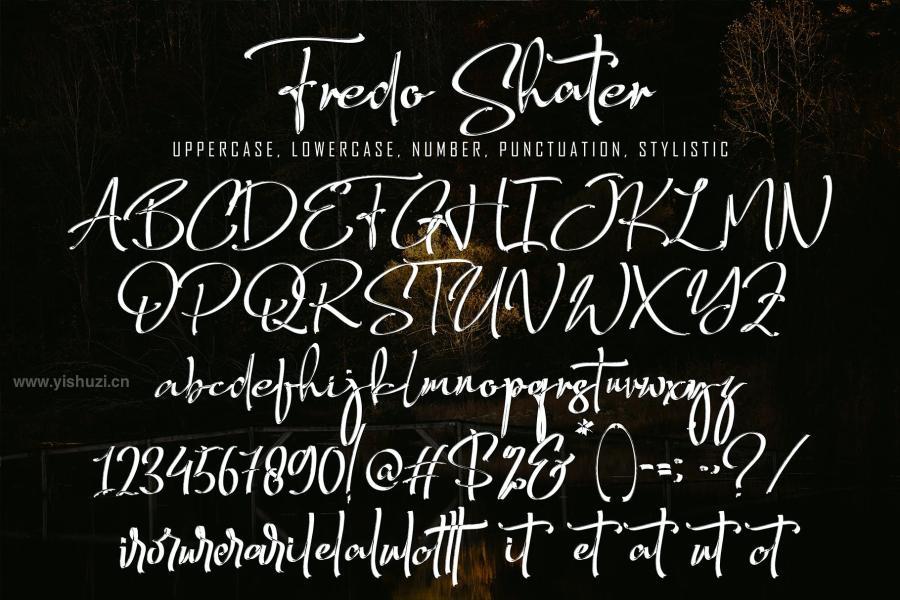 Fredo Shater
UPPERCASE, LOWERCASE, NUMBER, PUNCTUATION, STYLISTIC
ABCDEFGHIJKLMN
OPQRSTUVWXYZ
www.yishuzi.cn
abcdefhijklmnopqrstuvwxyz
1234567890!@#$%&*()-=;:?/
it et at ut ot